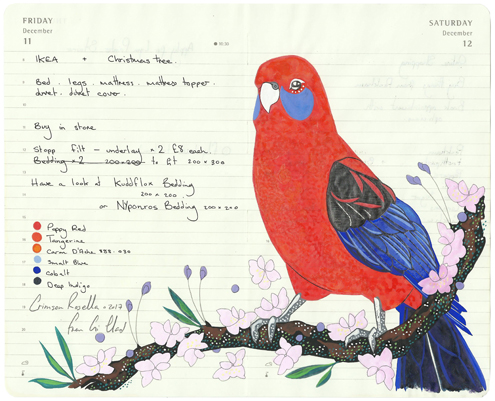 FRIDAY
December
11
IKEA + Christmas tree.
Bed . legs . mattress . mattress topper .
duvet . duvet cover .
Buy in store
Stopp filt – underlay x 2 £8 each.
Bedding x 2 200x200 to fit 200 x 200
Have a look at Kuddflox Bedding
200 x 200
or Nyponros Bedding 200 x 200
Poppy Red
Tangerine
Caran D'Ache 888 . 030
Smalt Blue
Cobalt
Deep Indigo
Crimson Rosella
SATURDAY
December
12